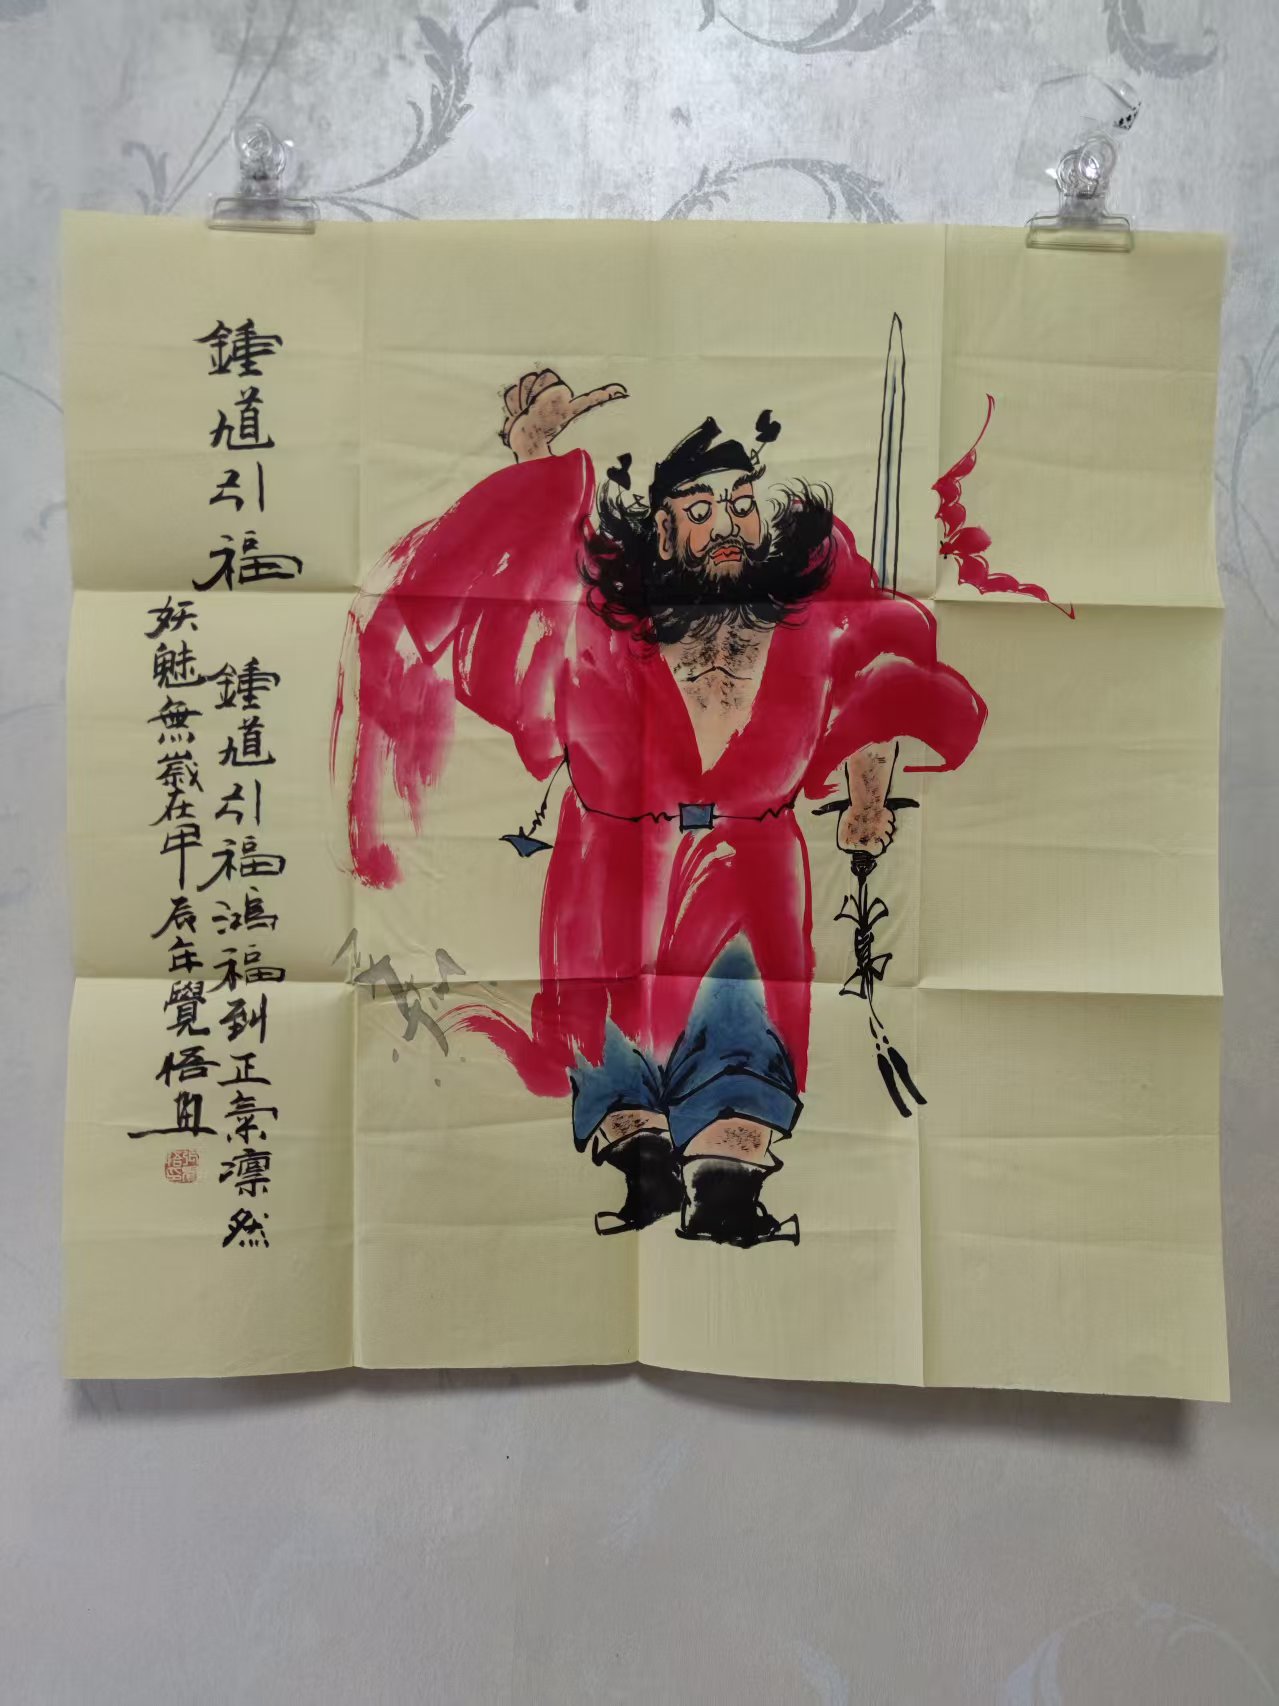 鍾馗引福
鍾馗引福鴻福到正氣凛然
妖魅無歲在甲辰年覺悟畫